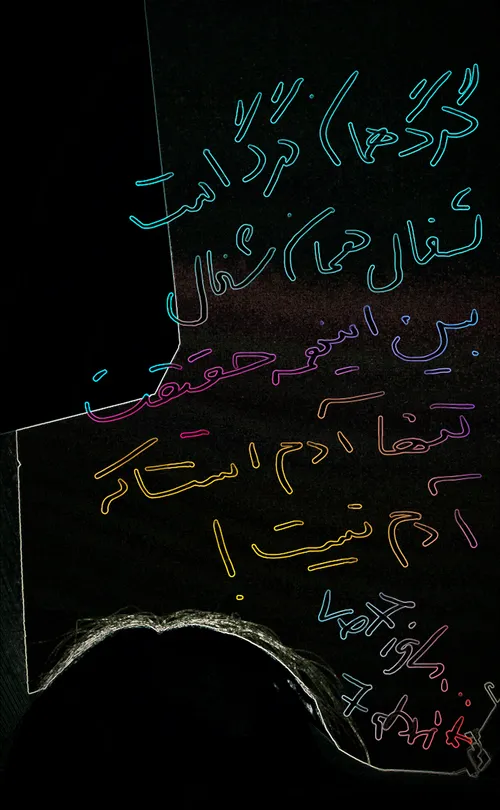 گرگ همان گرگ است
شغال همان شغال
بین اینهمه حقیقت
تنها آدم است که
آدم نیست!